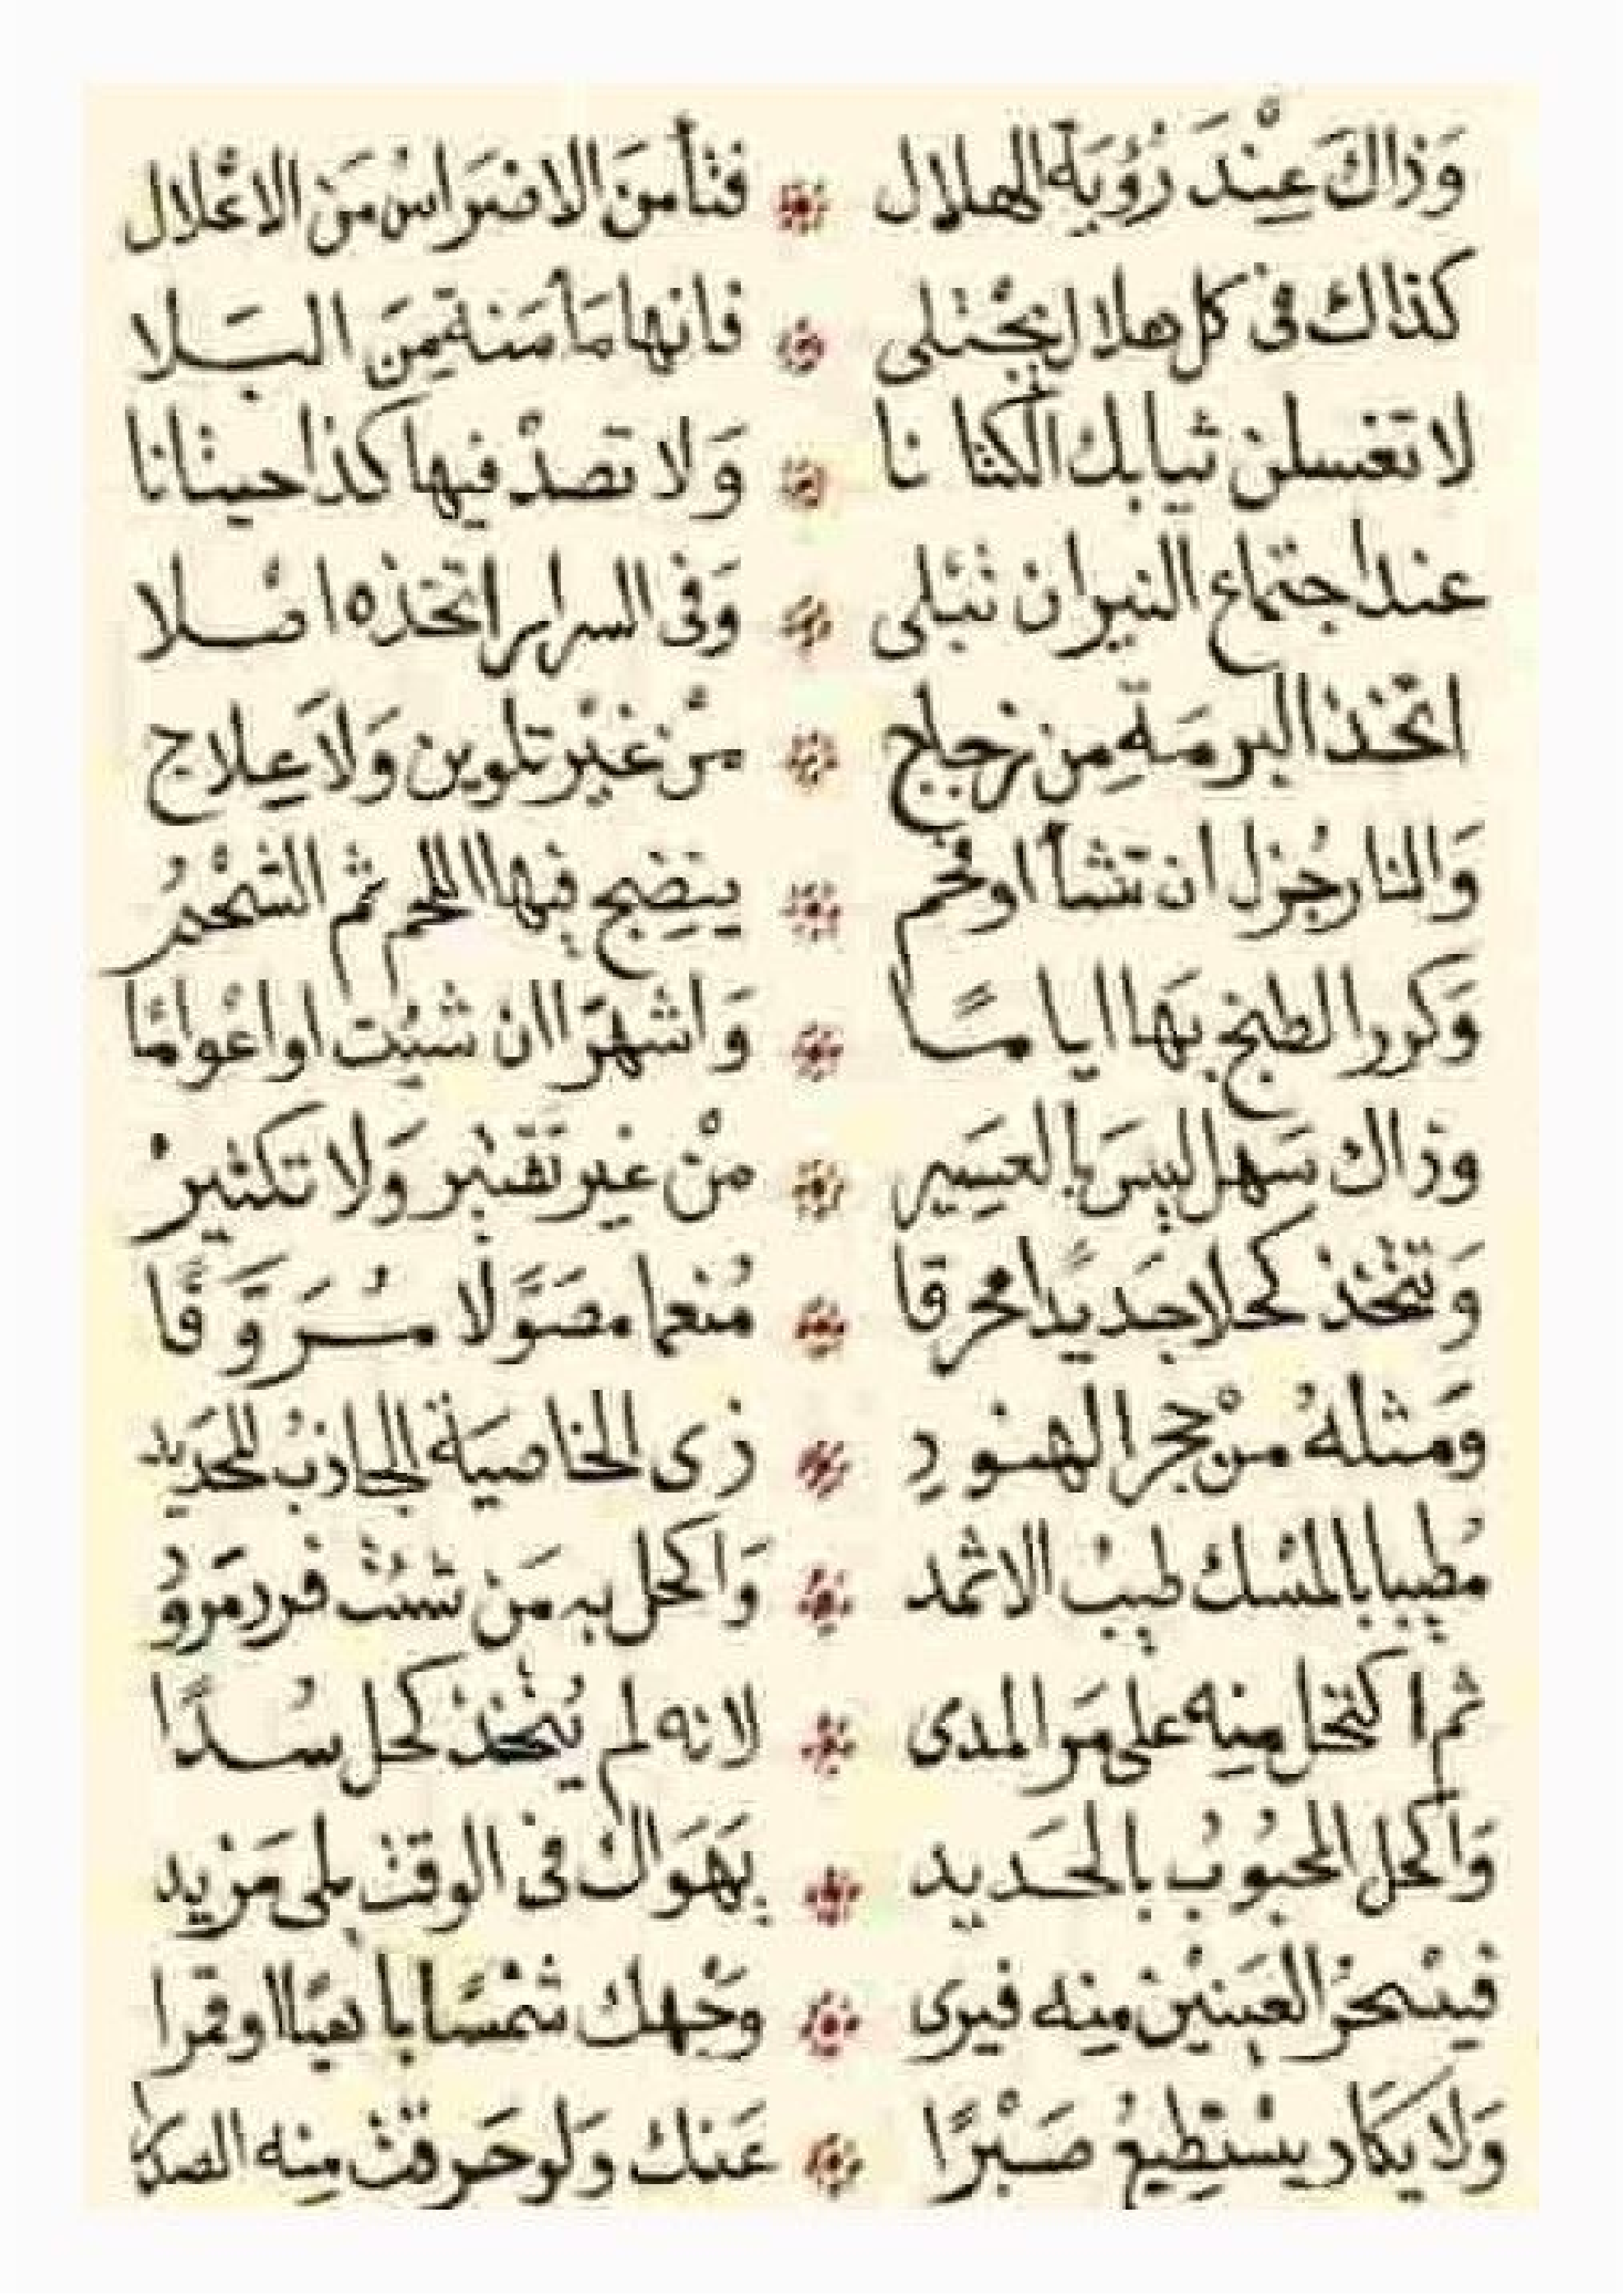 وَذَاكَ عِنْدَ رُؤْيَةِ الهلال ❊ فتأمَنَ الاضرَاسْ مَنَ الاعْلال
كذاك فى كل هلال يجْتلى ❊ فانها مَأمَنة مِنَ البَلا
لا تغسلن ثيابك الكتانا ❊ وَلا تصدْ فيها كذا حيتانا
عند اجتماع النيران تبْلى ❊ وَفى السراير اتخذه اصْلا
اتخذ البرمَة مِن زجاج ❊ مِنْ غيْر تلوين وَلاَ عِلاج
وَالنار جُزل ان تشأ اوفحم ❊ ينضِج فيها اللحم ثم الشحْمُ
وَكرر الطبخ بهَا ايامًا ❊ وَاشهرَا ان شئت او اعْوامًا
وذاك سَهل ليسَ بالعَسِير ❊ مِنْ غير تقتير وَلا تكثيرْ
وَتتخذ كحلا جَديدًا محرقا ❊ مُنعما مصَوَّلًا مُرَوَّقًا
وَمثلهُ منْ حجر الهنودِ ❊ ذى الخاصيَة الجاذبُ للحَديد
مُطيبا بالمسْك طيبْ الاثمد ❊ وَاكحل به مَن شئتْ
ثم اكتحل منِه على مَر المدى ❊ لانه لم يُتخذ كحل سُدًا
وَاكحل المحبُوبُ بالحَديد ❊ يهَوَاك فى الوقتْ بلى مَزيد
فيسْحَرَ العَينيْن منِه فيرى ❊ وجْهك شمْسًا با هيًا او قمرا
وَلا يكَاد يسْتطِيعُ صَبْرًا ❊ عَنك وَلو حَرقتْ منِه الصدرَا